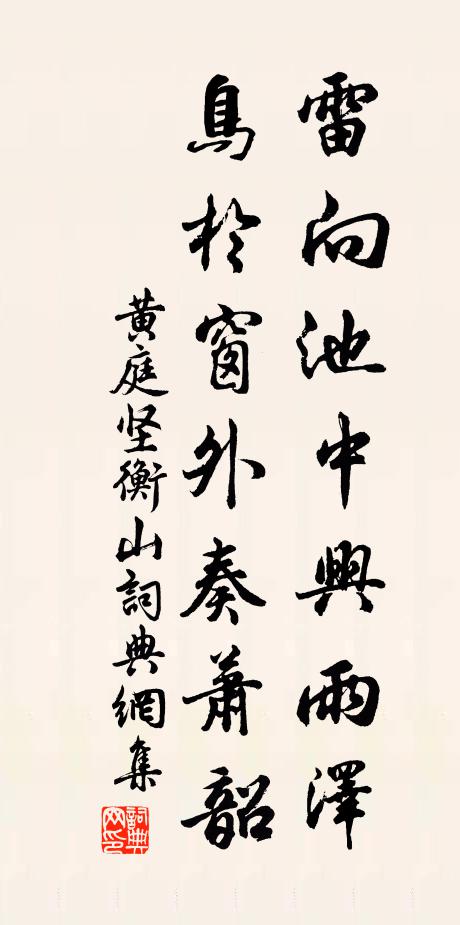 雷向池中興雨澤
鳥於窗外奏蕭韶
黄庭坚衡山詞典網集
詞典網印